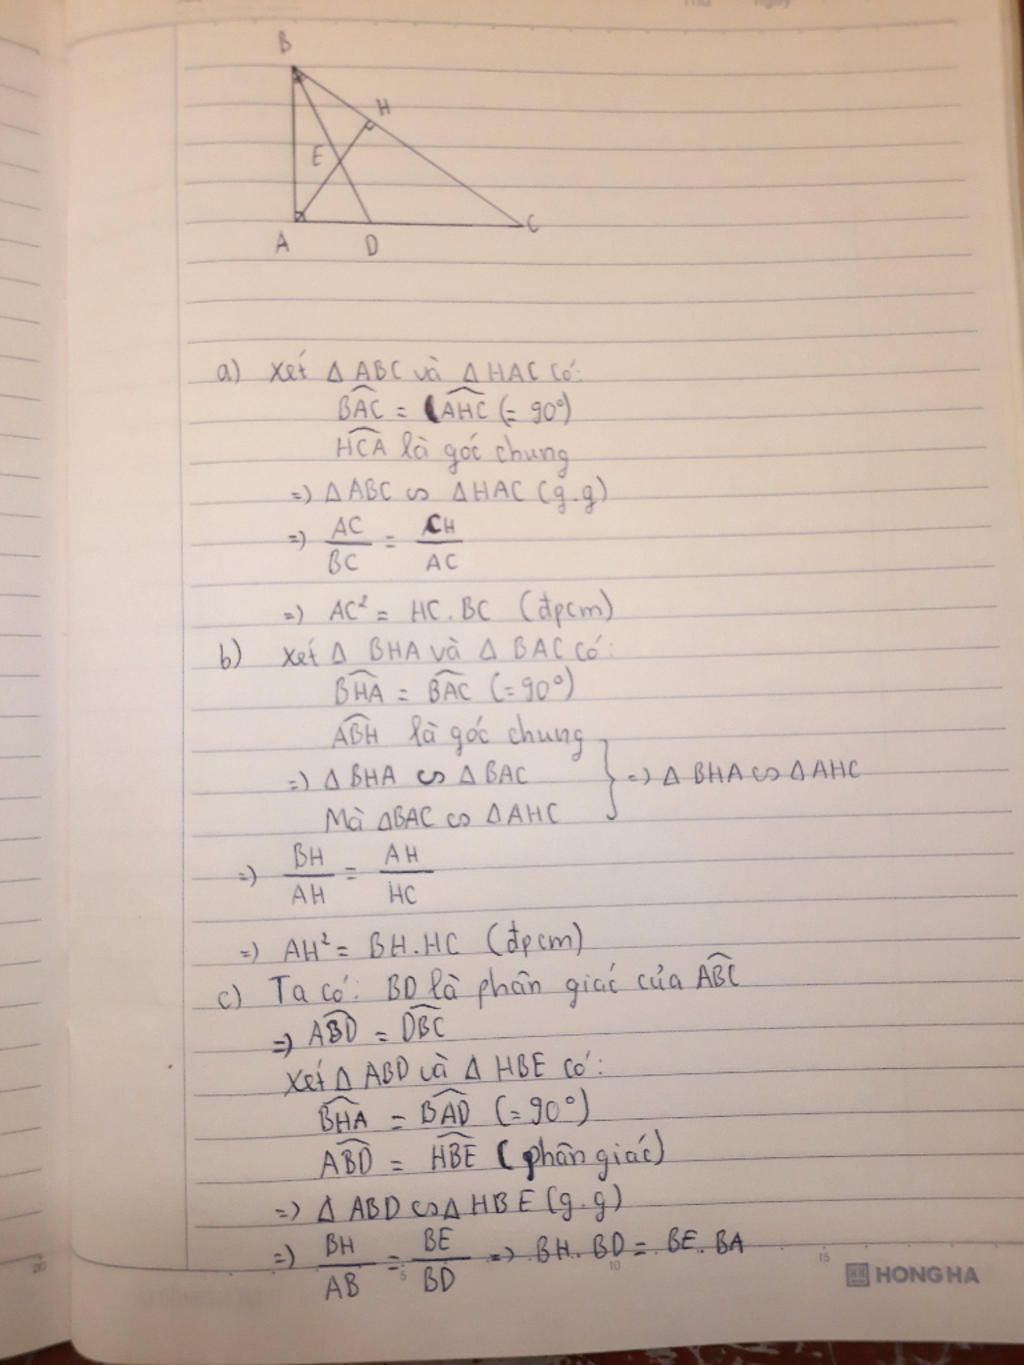 B
H
E
A
D
C
a) Xét Δ ABC và Δ HAC có:
BAC = AHC (= 90°)
HCA là góc chung
=) Δ ABC ∽ Δ HAC (g.g)
=) AC/BC = CH/AC
=) AC² = HC . BC (đpcm)
b) Xét Δ BHA và Δ BAC có:
BHA = BAC (= 90°)
ABH là góc chung
=) Δ BHA ∽ Δ BAC } =) Δ BHA ∽ Δ AHC
Mà ΔBAC ∽ ΔAHC
=) BH/AH = AH/HC
=) AH² = BH . HC (đpcm)
c) Ta có: BD là phân giác của ABC
=) ABD = DBC
Xét Δ ABD và Δ HBE có:
BHA = BAD (= 90°)
ABD = HBE (phân giác)
=) Δ ABD ∽ Δ HBE (g.g)
=) BH/AB = BE/BD =) BH . BD = BE . BA
20 5 10 15
HONG HA